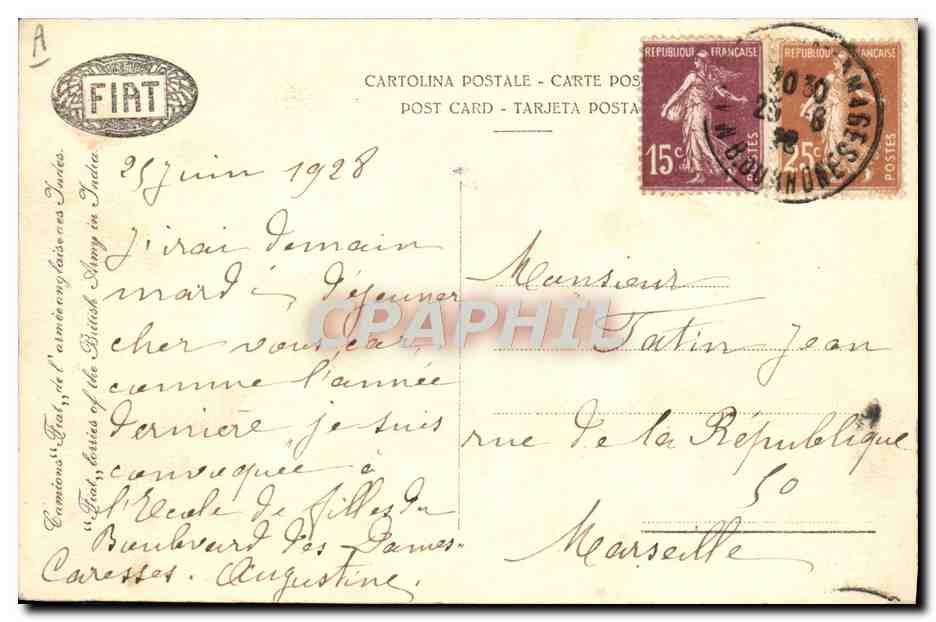 A
FIAT
CARTOLINA POSTALE - CARTE POS
POST CARD - TARJETA POSTA
REPUBLIQUE FRANÇAISE
15c
POSTES
REPUBLIQUE FRANÇAISE
25c
POSTES
Camions "Fiat" de l'armée anglaise des Indes.
"Fiat" lorries of the British Army in India.
25 juin 1928
J'irai demain
mardi déjeuner
cher vous car
comme l'année
dernière je suis
convoquée à
l'Ecole de filles du
Boulevard des Dames.
Caresses. Augustine.
Monsieur
Tatin Jean
rue de la République
50
Marseille
CPAPHIL